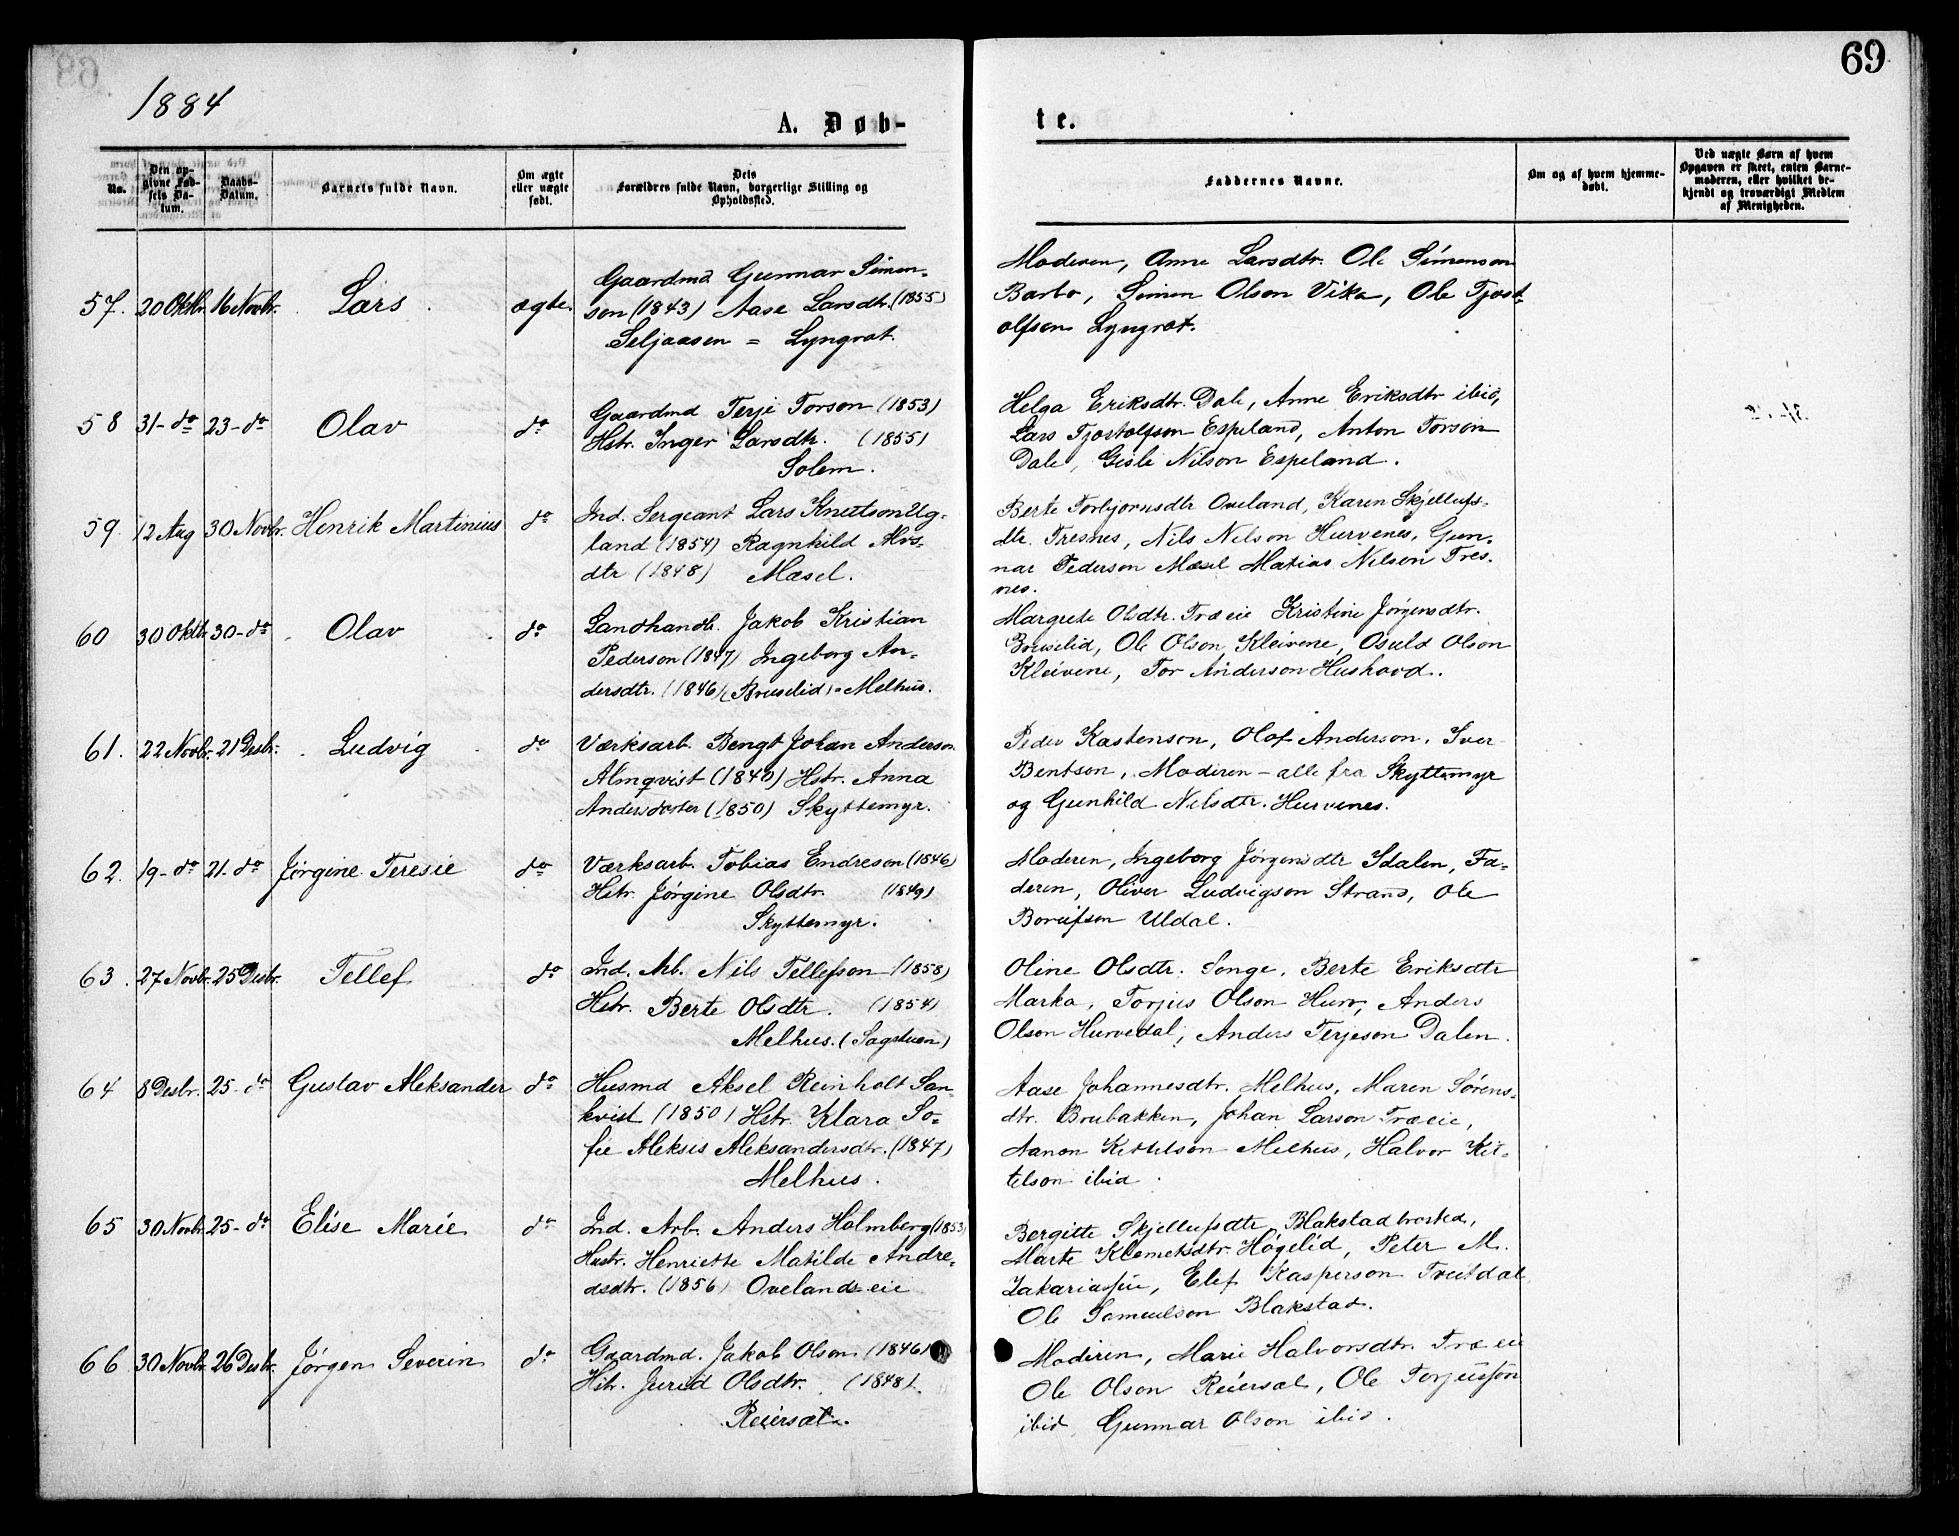 69
1884
A. Døb-
te.
No.
Den op-
givne Fød-
sels Da-
tum.
Daabs-
Datum.
Barnets fulde Navn.
Om ægte
eller uægte
født.
Dets
Forældres fulde Navn, borgerlige Stilling og
Opholdssted.
Faddernes Navne.
Om og af hvem hjemme-
døbt.
Ved uægte Børn af hvem
Opgaven er skeet, enten Barne-
moderen, eller hvilket be-
kjendt og troværdigt Medlem
af Menigheden.
57. 20 Oktbr. 16 Novbr. Lars ægte.
Gaardmd Gunnar Simon-
son (1843) Aase Larsdtr. (1855)
Seljaasen = Lyngrot.
Moderen, Anne Larsdtr. Ole Simonson
Barbo, Simon Olson Vika, Ole Tjost-
olfson Lyngrot.
58 31- do 23- do Olav do
Gaardmd Terje Torson (1853)
Hstr. Inger Larsdtr. (1855)
Solem.
Helga Eriksdtr. Dale, Anne Eriksdtr ibid,
Lars Tjostolfson Espeland, Anton Torson
Dale, Gisle Nilson Espeland.
59. 12 Aug 30 Novbr. Henrik Martinius do
Ind. Sergeant Lars Knutson Ug-
land (1854) Ragnhild Alvs-
dtr (1848) Mæsel.
Berte Torbjørnsdtr Oveland, Karen Skjellufs-
dtr. Tresnes, Nils Nilson Hurvenes, Gun-
nar Pederson Mæsel Matias Nilson Tres-
nes.
60 30 Oktbr 30- do Olav do
Landhandl. Jakob Kristian
Pederson (1847) Ingeborg An-
dersdtr. (1846) (Bruselid) = Melhus.
Margrete Olsdtr. Træeie Kristine Jørgensdtr.
Bruselid, Ole Olson Kleivene, Osuld Olson
Kleivene, Tor Anderson Hushovd.
61. 22 Novbr. 21 Desbr. Ludvig do
Værksarb. Bengt Johan Anderson
Almqvist (1840) Hstr. Anna
Andersdoter (1850) Skyttemyr.
Peder Kastenson, Olof Anderson, Iver
Bentson, Moderen - alle fra Skyttemyr
og Gunhild Nilsdtr. Hurvenes.
62. 19- do 21- do Jørgine Teresie do
Værksarb. Tobias Endreson (1846)
Hstr. Jørgine Olsdtr. (1849)
Skyttemyr.
Moderen, Ingeborg Jørgensdtr Idalen, Fa-
deren, Oliver Ludvigson Strand, Ole
Borufson Uldal.
63. 27 Novbr. 25 Desbr. Tellef do
Ind. Arb. Nils Tellefson (1858)
Hstr. Berte Olsdtr. (1854)
Melhus. (Sagstuen)
Oline Olsdtr. Songe, Berte Eriksdtr
Marka, Torjus Olson Hurv, Anders
Olson Hurvedal, Anders Terjeson Dalen.
64 8 Desbr. 25- do Gustav Aleksander do
Husmd Aksel Reinholt San-
kvist (1850) Hstr. Klara So-
fie Aleksis Aleksandersdtr. (1847)
Melhus.
Aase Johannesdtr. Melhus, Maren Sørens-
dtr. Brubakken, Johan Larson Træeie,
Aanon Kittelson Melhus, Halvor Kit-
telson ibid.
65 30 Novbr 25- do Elise Marie do
Ind. Arb. Anders Holmberg (1853)
Hustr. Henriette Matilde Andre-
asdtr. (1856) Ovelands eie
Bergitte Skjellufsdtr Blakstadbrosted,
Marte Klemetsdtr. Høgelid, Peter M.
Zakariassen, Elef Kasperson Tveitdal,
Ole Samuelson Blakstad.
66 30 Novbr 26 Desbr. Jørgen Severin do
Gaardmd. Jakob Olson (1846)
Hstr. Jurid Olsdtr. (1848).
Reiersøl.
Moderen, Marie Halvorsdtr. Træ eie
Ole Olson Reiersøl, Ole Torjusson
ibid, Gunnar Olson ibid.